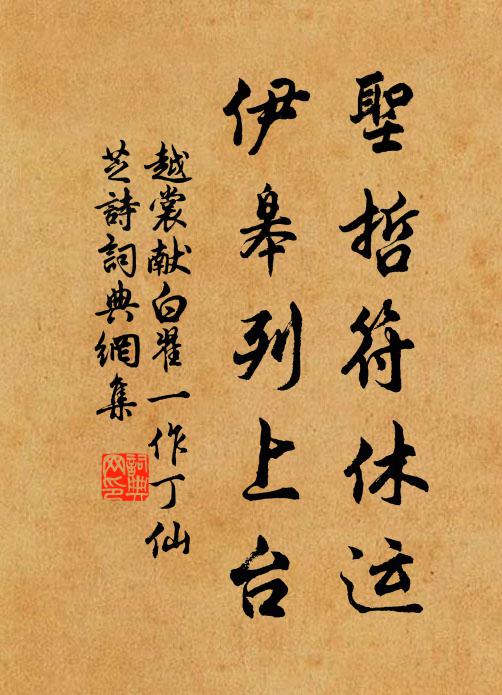 聖哲符休运
伊皋列上台
越裳献白翟一作丁仙
芝詩詞典網集
詞典网印